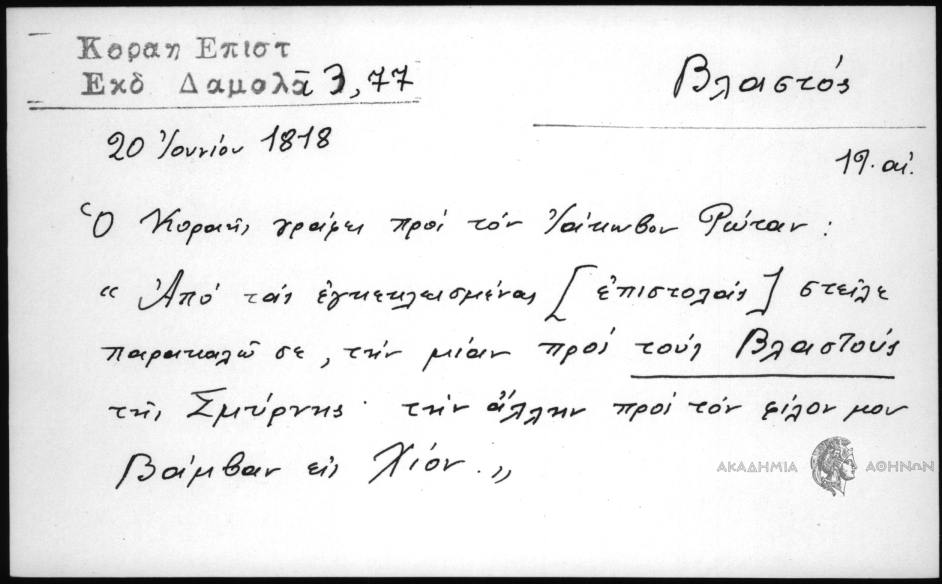 Κοραη Επιστ
Εκδ Δαμολᾶ 3, 77
Βλαστός
20 Ἰουνίου 1818
19. αἰ.
Ὁ Κοραῆς γράφει πρός τόν Ἰάκωβον Ρώταν :
“ Ἀπό τάς ἐγκεκλεισμένας [ ἐπιστολάς ] στεῖλε
παρακαλῶ σε, τήν μίαν πρός τούς Βλαστούς
τῆς Σμύρνης · τήν ἄλλην πρός τόν φίλον μου
Βάμβαν εἰς Χίον . „
ΑΚΑΔΗΜΙΑ ΑΘΗΝΩΝ